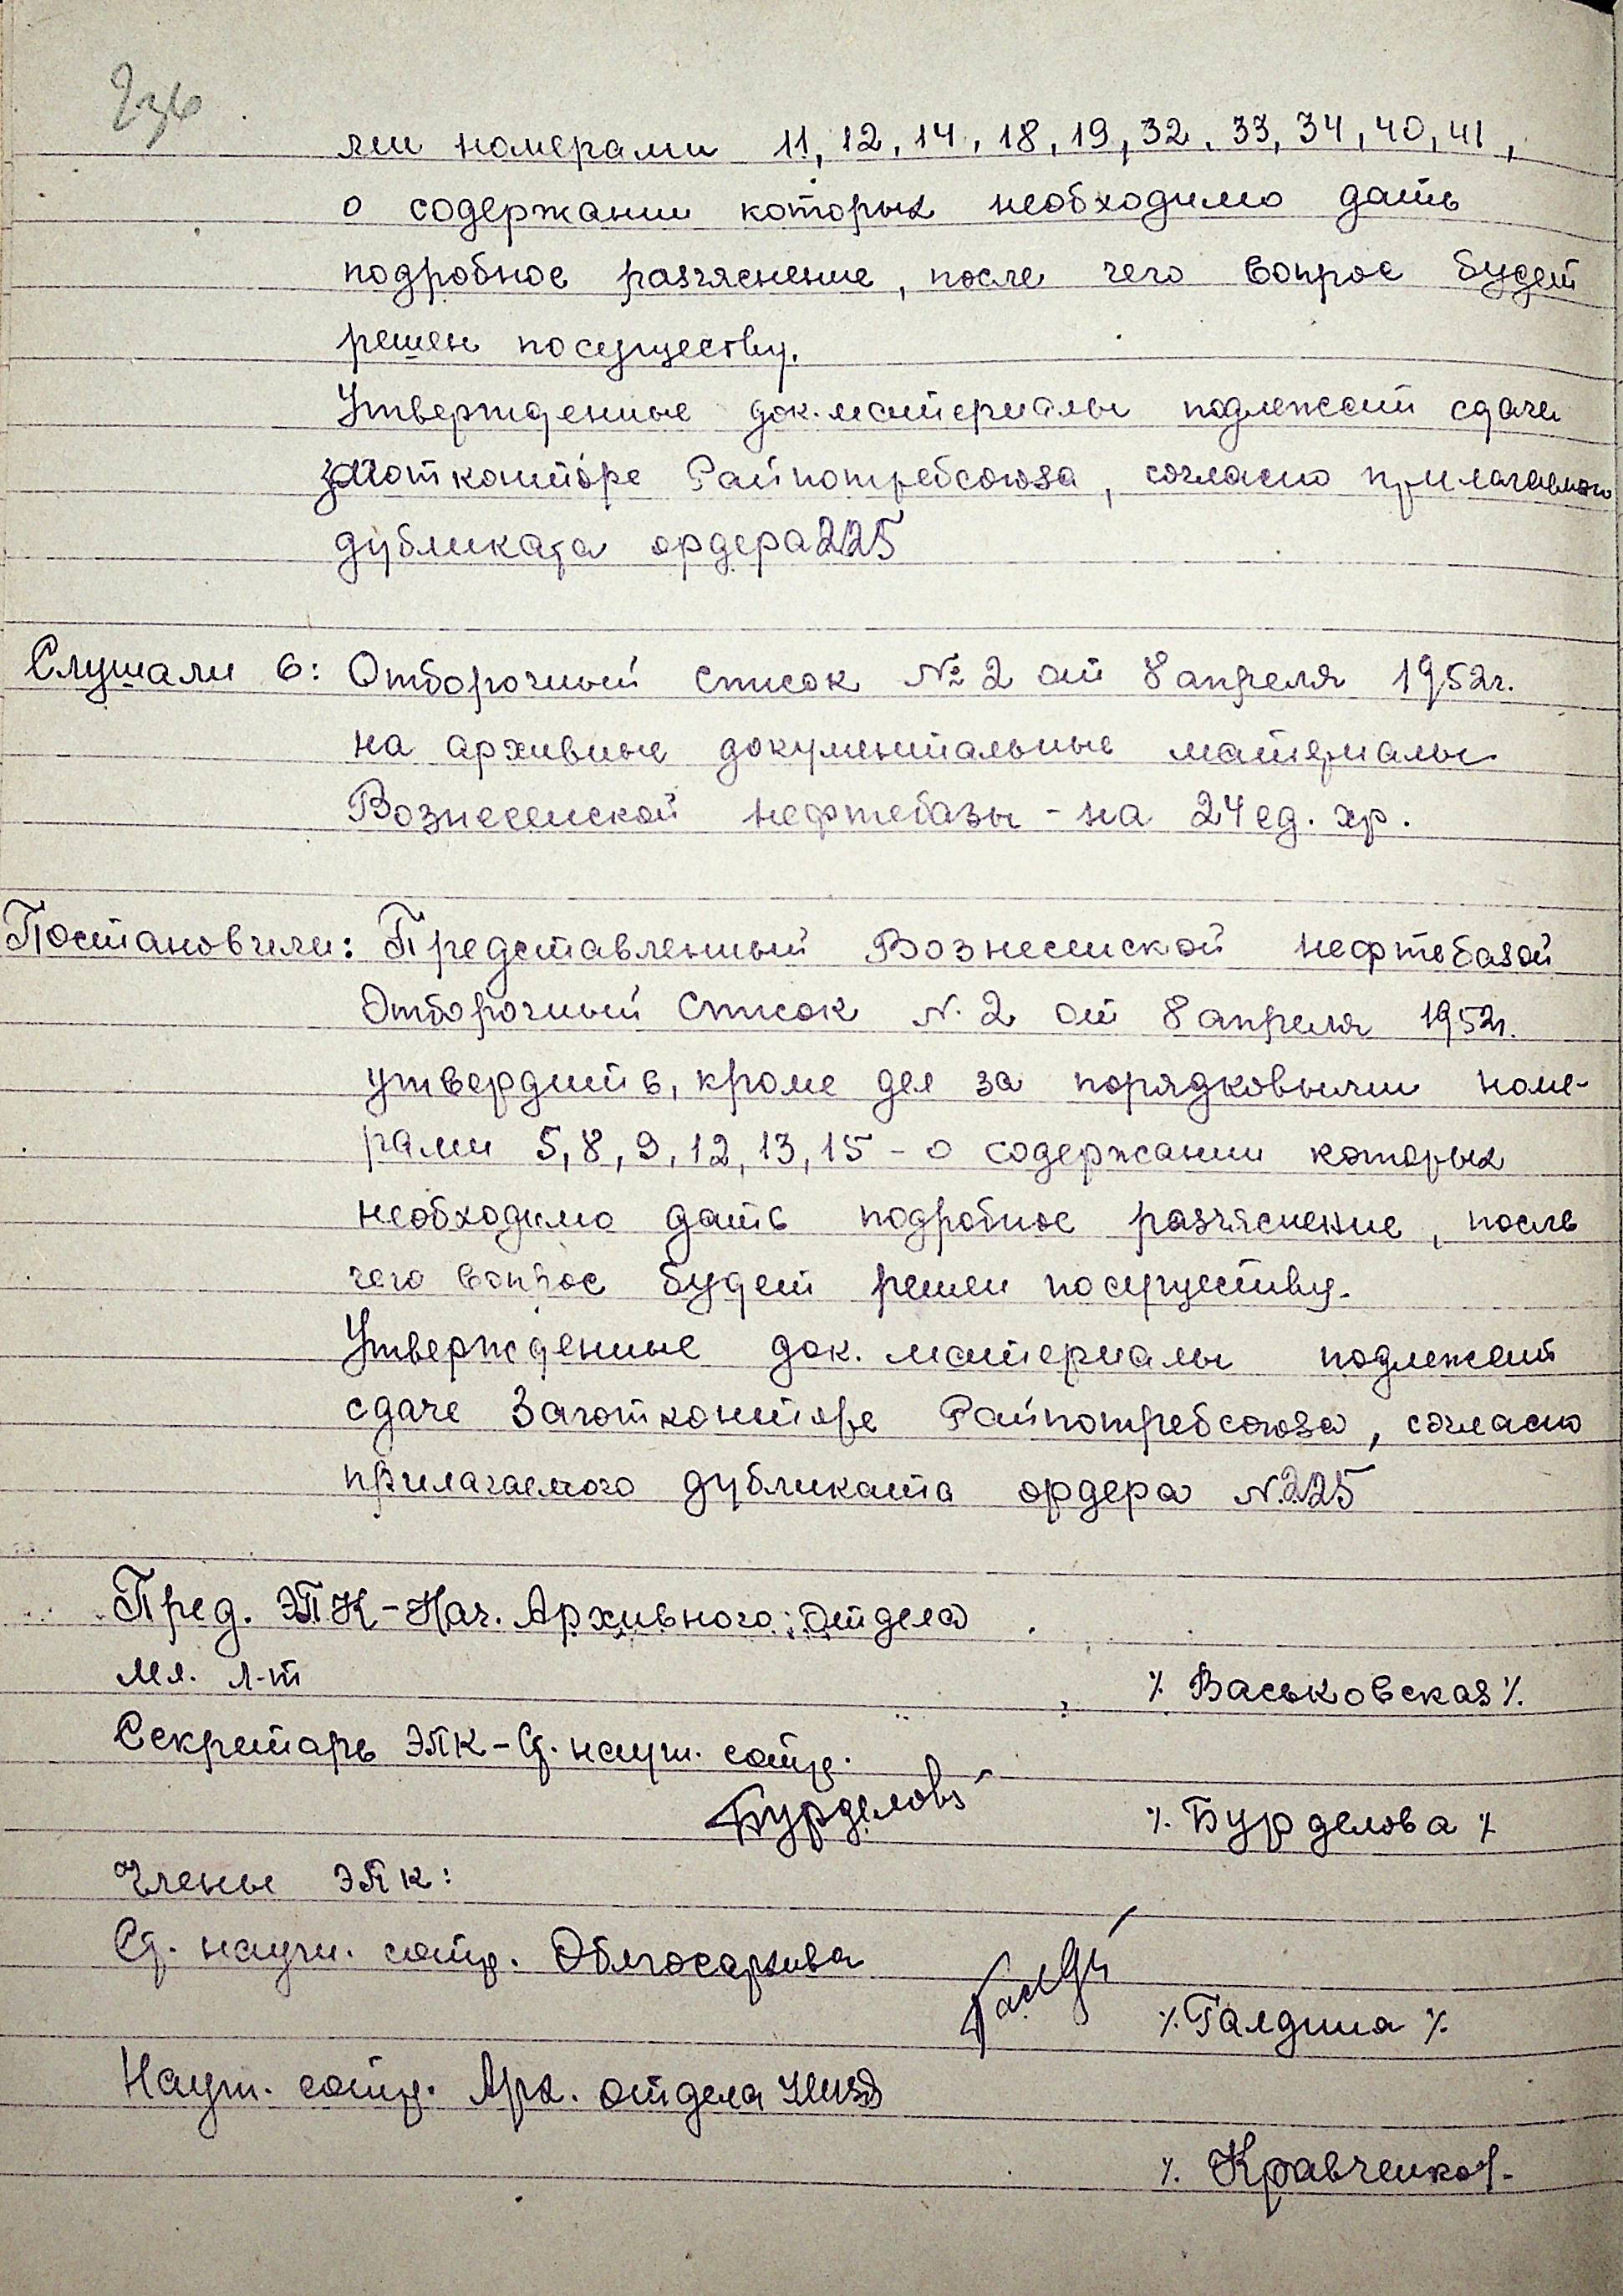 236
ми номерами 11, 12, 14, 18, 19, 32, 33, 34, 40, 41,
о содержании которых необходимо дать
подробное разъяснение, после чего вопрос будет
решен посуществу.
Утвержденные док. материалы подлежат сдачи
Заготконторе Райпотребсоюза, согласно прилагаемого
дубликата ордера 225
Слушали 6: Отборочный список № 2 от 8 апреля 1952г.
на архивные документальные материалы
Вознесенской нефтебазы - на 24 ед. хр.
Постановили: Представленный Вознесенской нефтебазой
Отборочный список N. 2 от 8 апреля 1952г.
утвердить, кроме дел за порядковыми номе-
рами 5, 8, 9, 12, 13, 15 - о содержании которых
необходимо дать подробное разъяснение, после
чего вопрос будет решен посуществу.
Утвержденные док. материалы подлежат
сдаче Заготконторе Райпотребсоюза, согласно
прилагаемого дубликата ордера N.225
Пред. ЭПК - Нач. Архивного отдела
мл. л-т
% Васьковская %
Секретарь ЭПК - Ст. научн. сотр.
Бурделова
% Бурделова %
Члены ЭПК:
Ст. научн. сотр. Облгосархива
% Галдина %
Научн. сотр. Арх. отдела
% Кравченко %